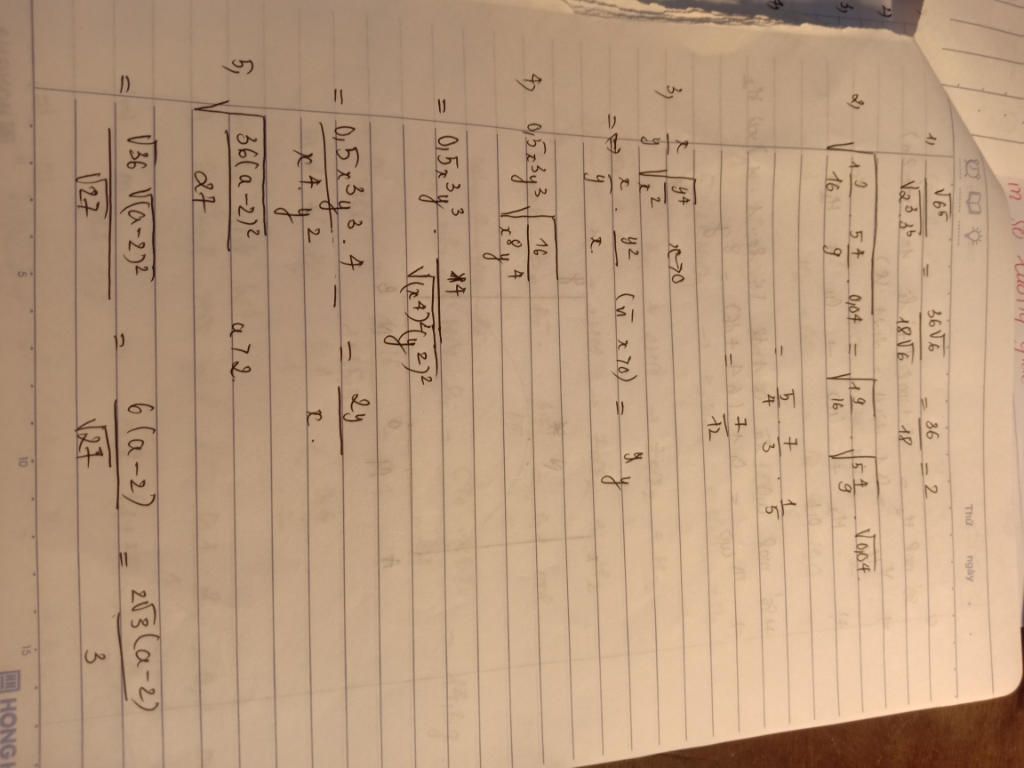 Thứ
ngày
1, √6⁵/√2³3⁵ = 36√6/18√6 = 36/18 = 2
2, √(1 9/16 . 5 4/9 . 0,04) = √(1 9/16) . √(5 4/9) . √0,04
= 5/4 . 7/3 . 1/5
= 7/12
3, x/y √(y⁴/x²) x>0
= x/y . y²/x (vì x>0) = y
4, 0,5x³y³ √(16/x⁸y⁴)
= 0,5x³y³ . 4/√(x⁴)²(y²)²
= 0,5x³y³.4/x⁴.y² = 2y/x.
5, √(36(a-2)²/27) a>2
= √36 √(a-2)²/√27 = 6(a-2)/√27 = 2√3(a-2)/3
5
10
15